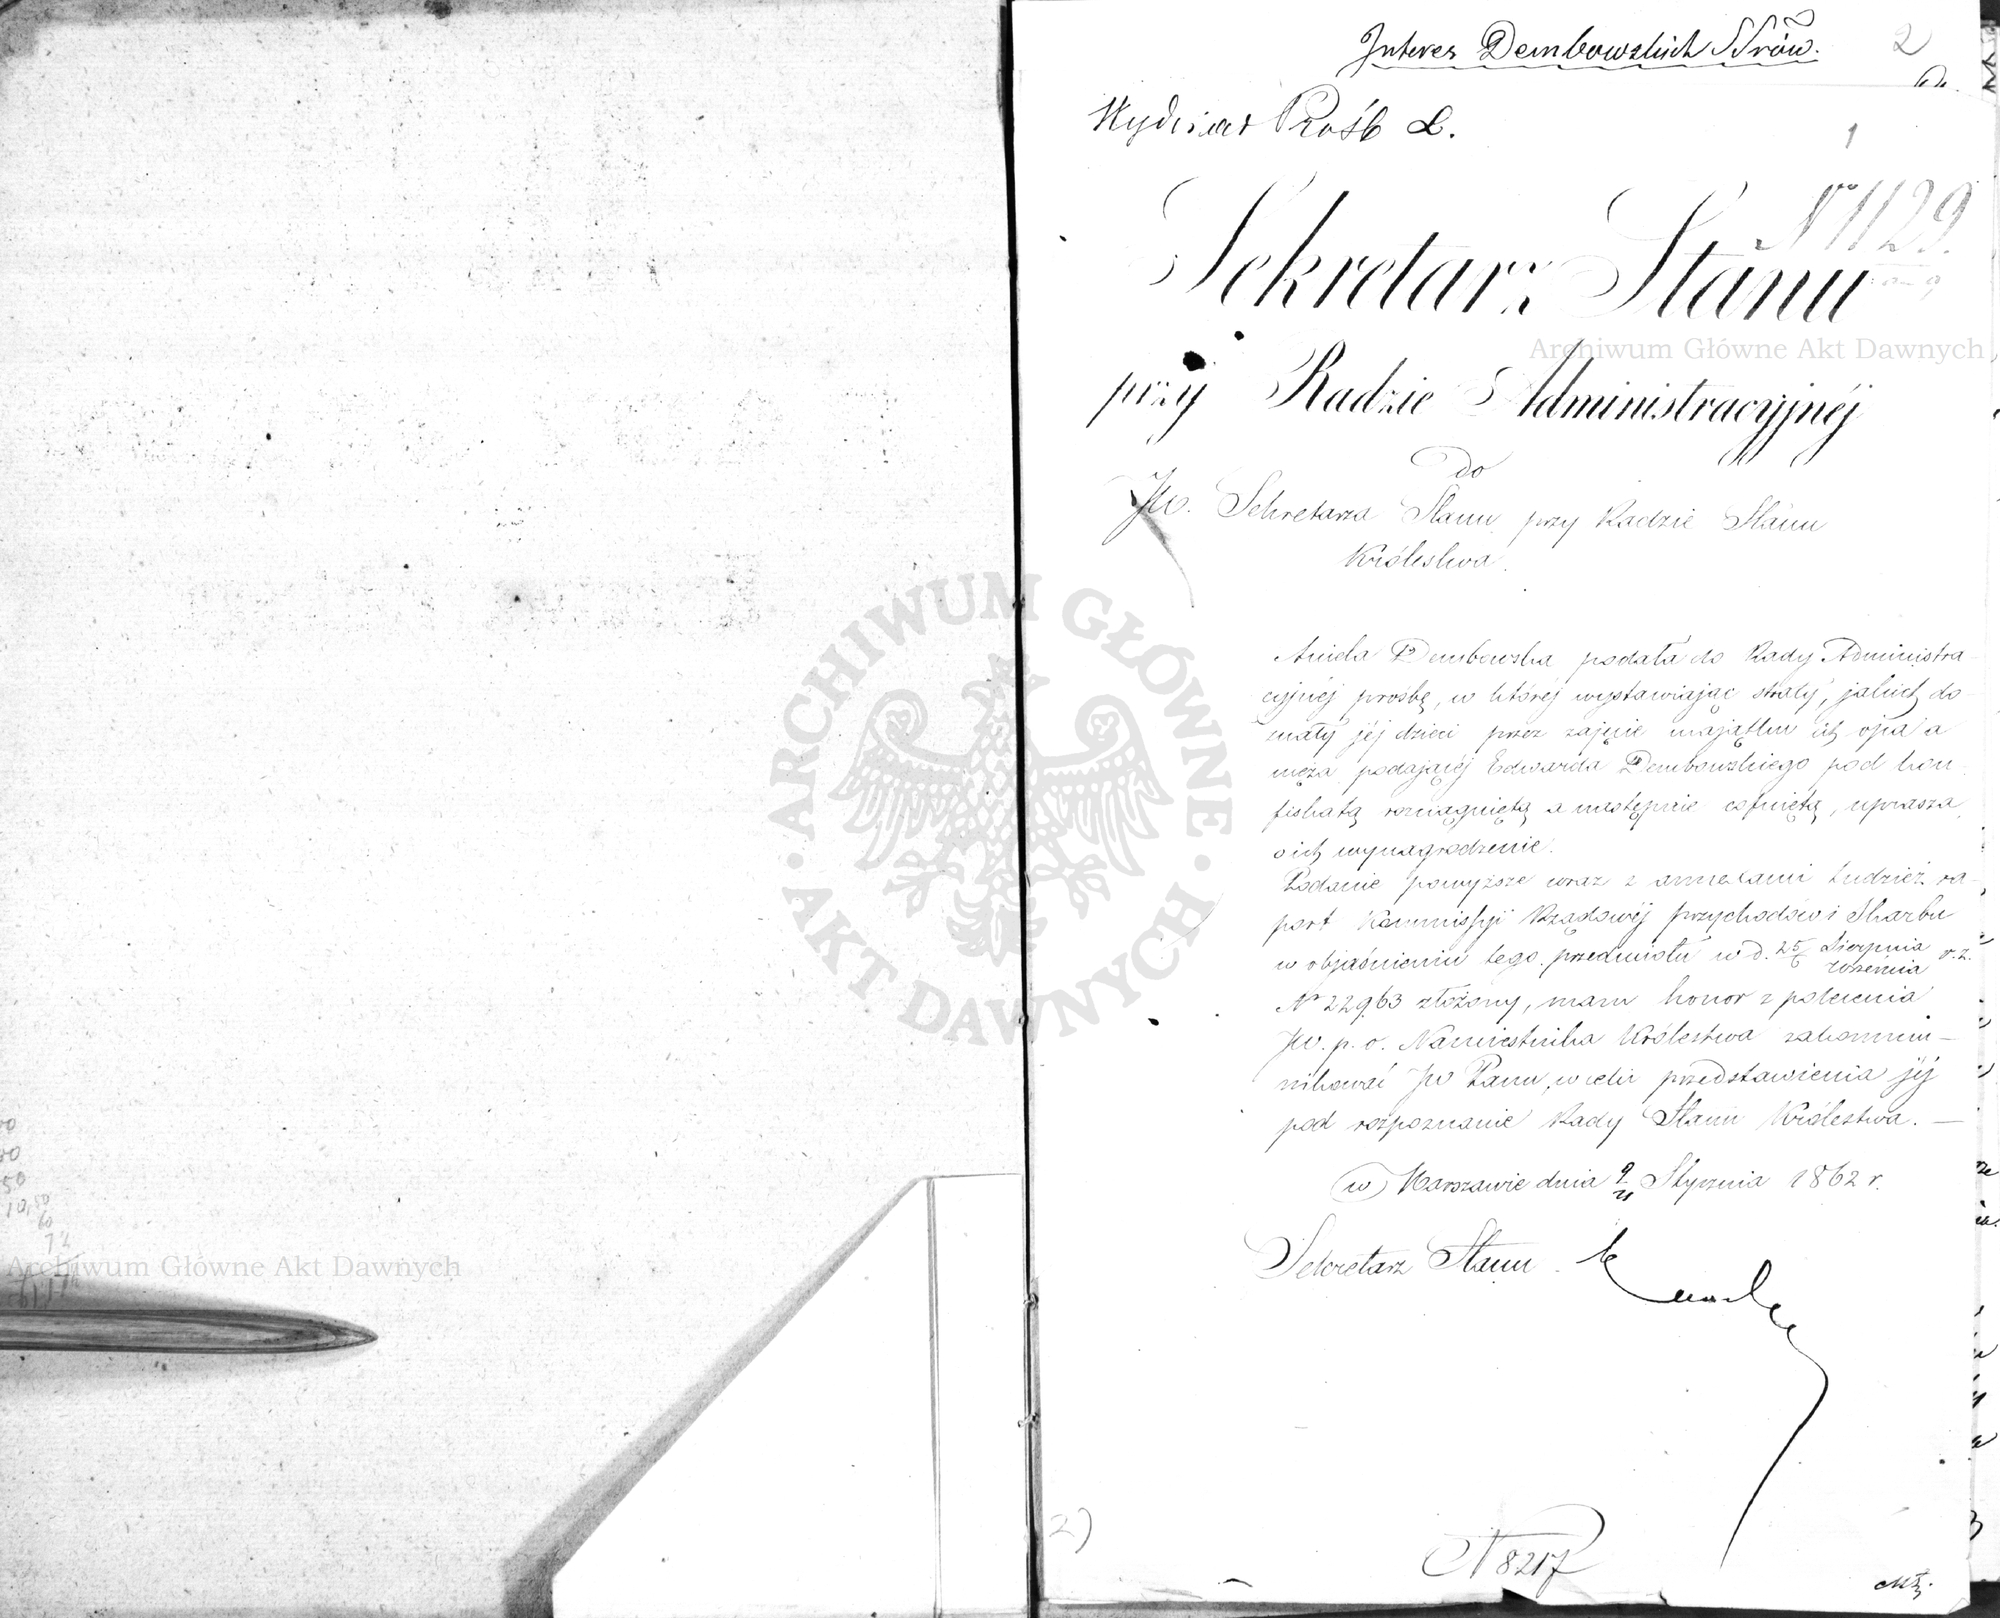 Interes Dembowskich SSrów.
2
Wydział Próśb
1
№ 1129.
Sekretarz Stanu
przy Radzie Administracyjnéj
do
JW. Sekretarza Stanu przy Radzie Stanu
Królestwa.
Aniela Dembowska podała do Rady Administra-
cyjnéj prośbę, w któréj wystawiając straty, jakich do-
znały jéj dzieci przez zajęcie majątku ich ojca a
męża podającéj Edwarda Dembowskiego pod kon-
fiskatą rozciągniętą a następnie cofniętą, uprasza
o ich wynagrodzenie.
Podanie powyższe wraz z annexami tudzież ra-
port Kommissyi Rządowéj Przychodów i Skarbu
w objaśnieniu tego przedmiotu w d. 25/6 Sierpnia/Września r. z.
№ 22963 złożony, mam honor z polecenia
JW. p. o. Namiestnika Królestwa zakommu-
nikować JW Panu, w celu przedstawienia jéj
pod rozpoznanie Rady Stanu Królestwa. —
w Warszawie dnia 9/21 Stycznia 1862 r.
Sekretarz Stanu
2)
N 8217
50
60
Archiwum Główne Akt Dawnych
Archiwum Główne Akt Dawnych
ARCHIWUM GŁÓWNE · AKT DAWNYCH ·